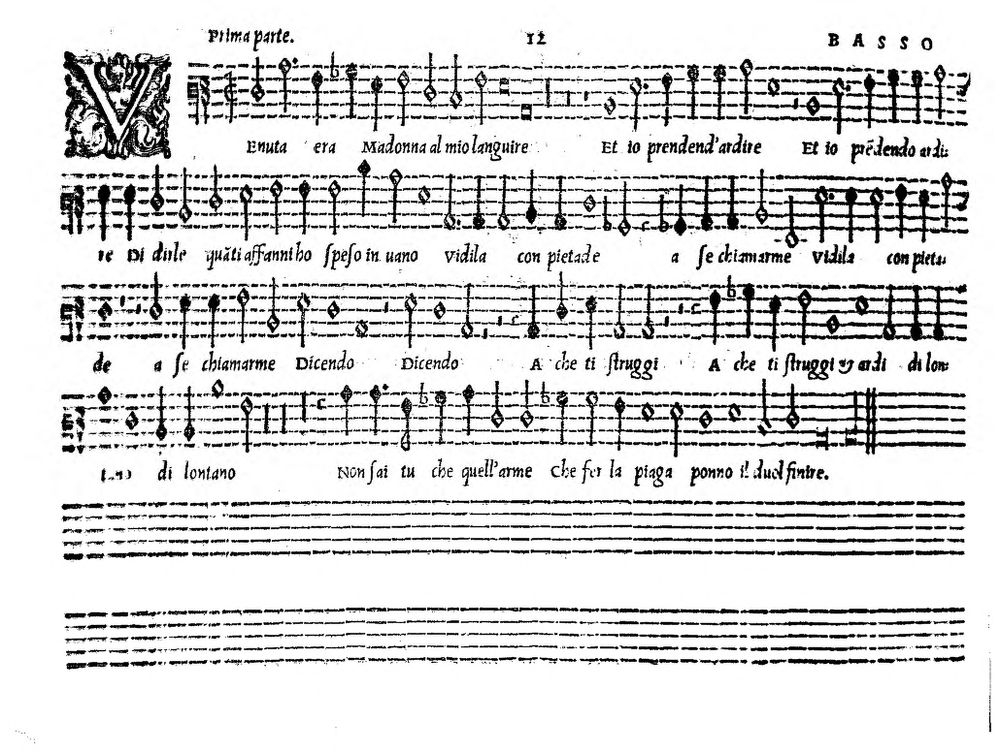 Prima parte. 12 BASSO
VEnuta era Madonna al mio languire Et io prendend'ardire Et io prẽdendo ardi:
re Di dirle quãti affanni ho speso in uano Vidila con pietade a se chiamarme Vidila con pieta:
de a se chiamarme Dicendo Dicendo A che ti struggi A che ti struggi & ardi di lon:
tano di lontano Non sai tu che quell'arme Che fer la piaga ponno il duol finire.